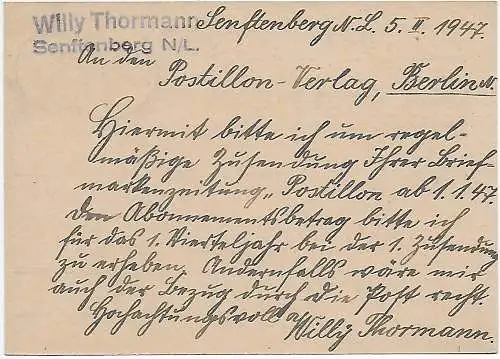 Willy Thormann
Senftenberg N/L.
Senftenberg N.L. 5. II. 1947.
An den
Postillon-Verlag, Berlin N.
Hiermit bitte ich um regel-
mäßige Zusendung Ihrer Brief-
markenzeitung „Postillon ab 1.1.47.
Den Abonnementsbetrag bitte ich
für das 1. Vierteljahr bei der 1. Zusendung
zu erheben. Andernfalls wäre mir
auch der Bezug durch die Post recht.
Hochachtungsvoll
Willy Thormann.